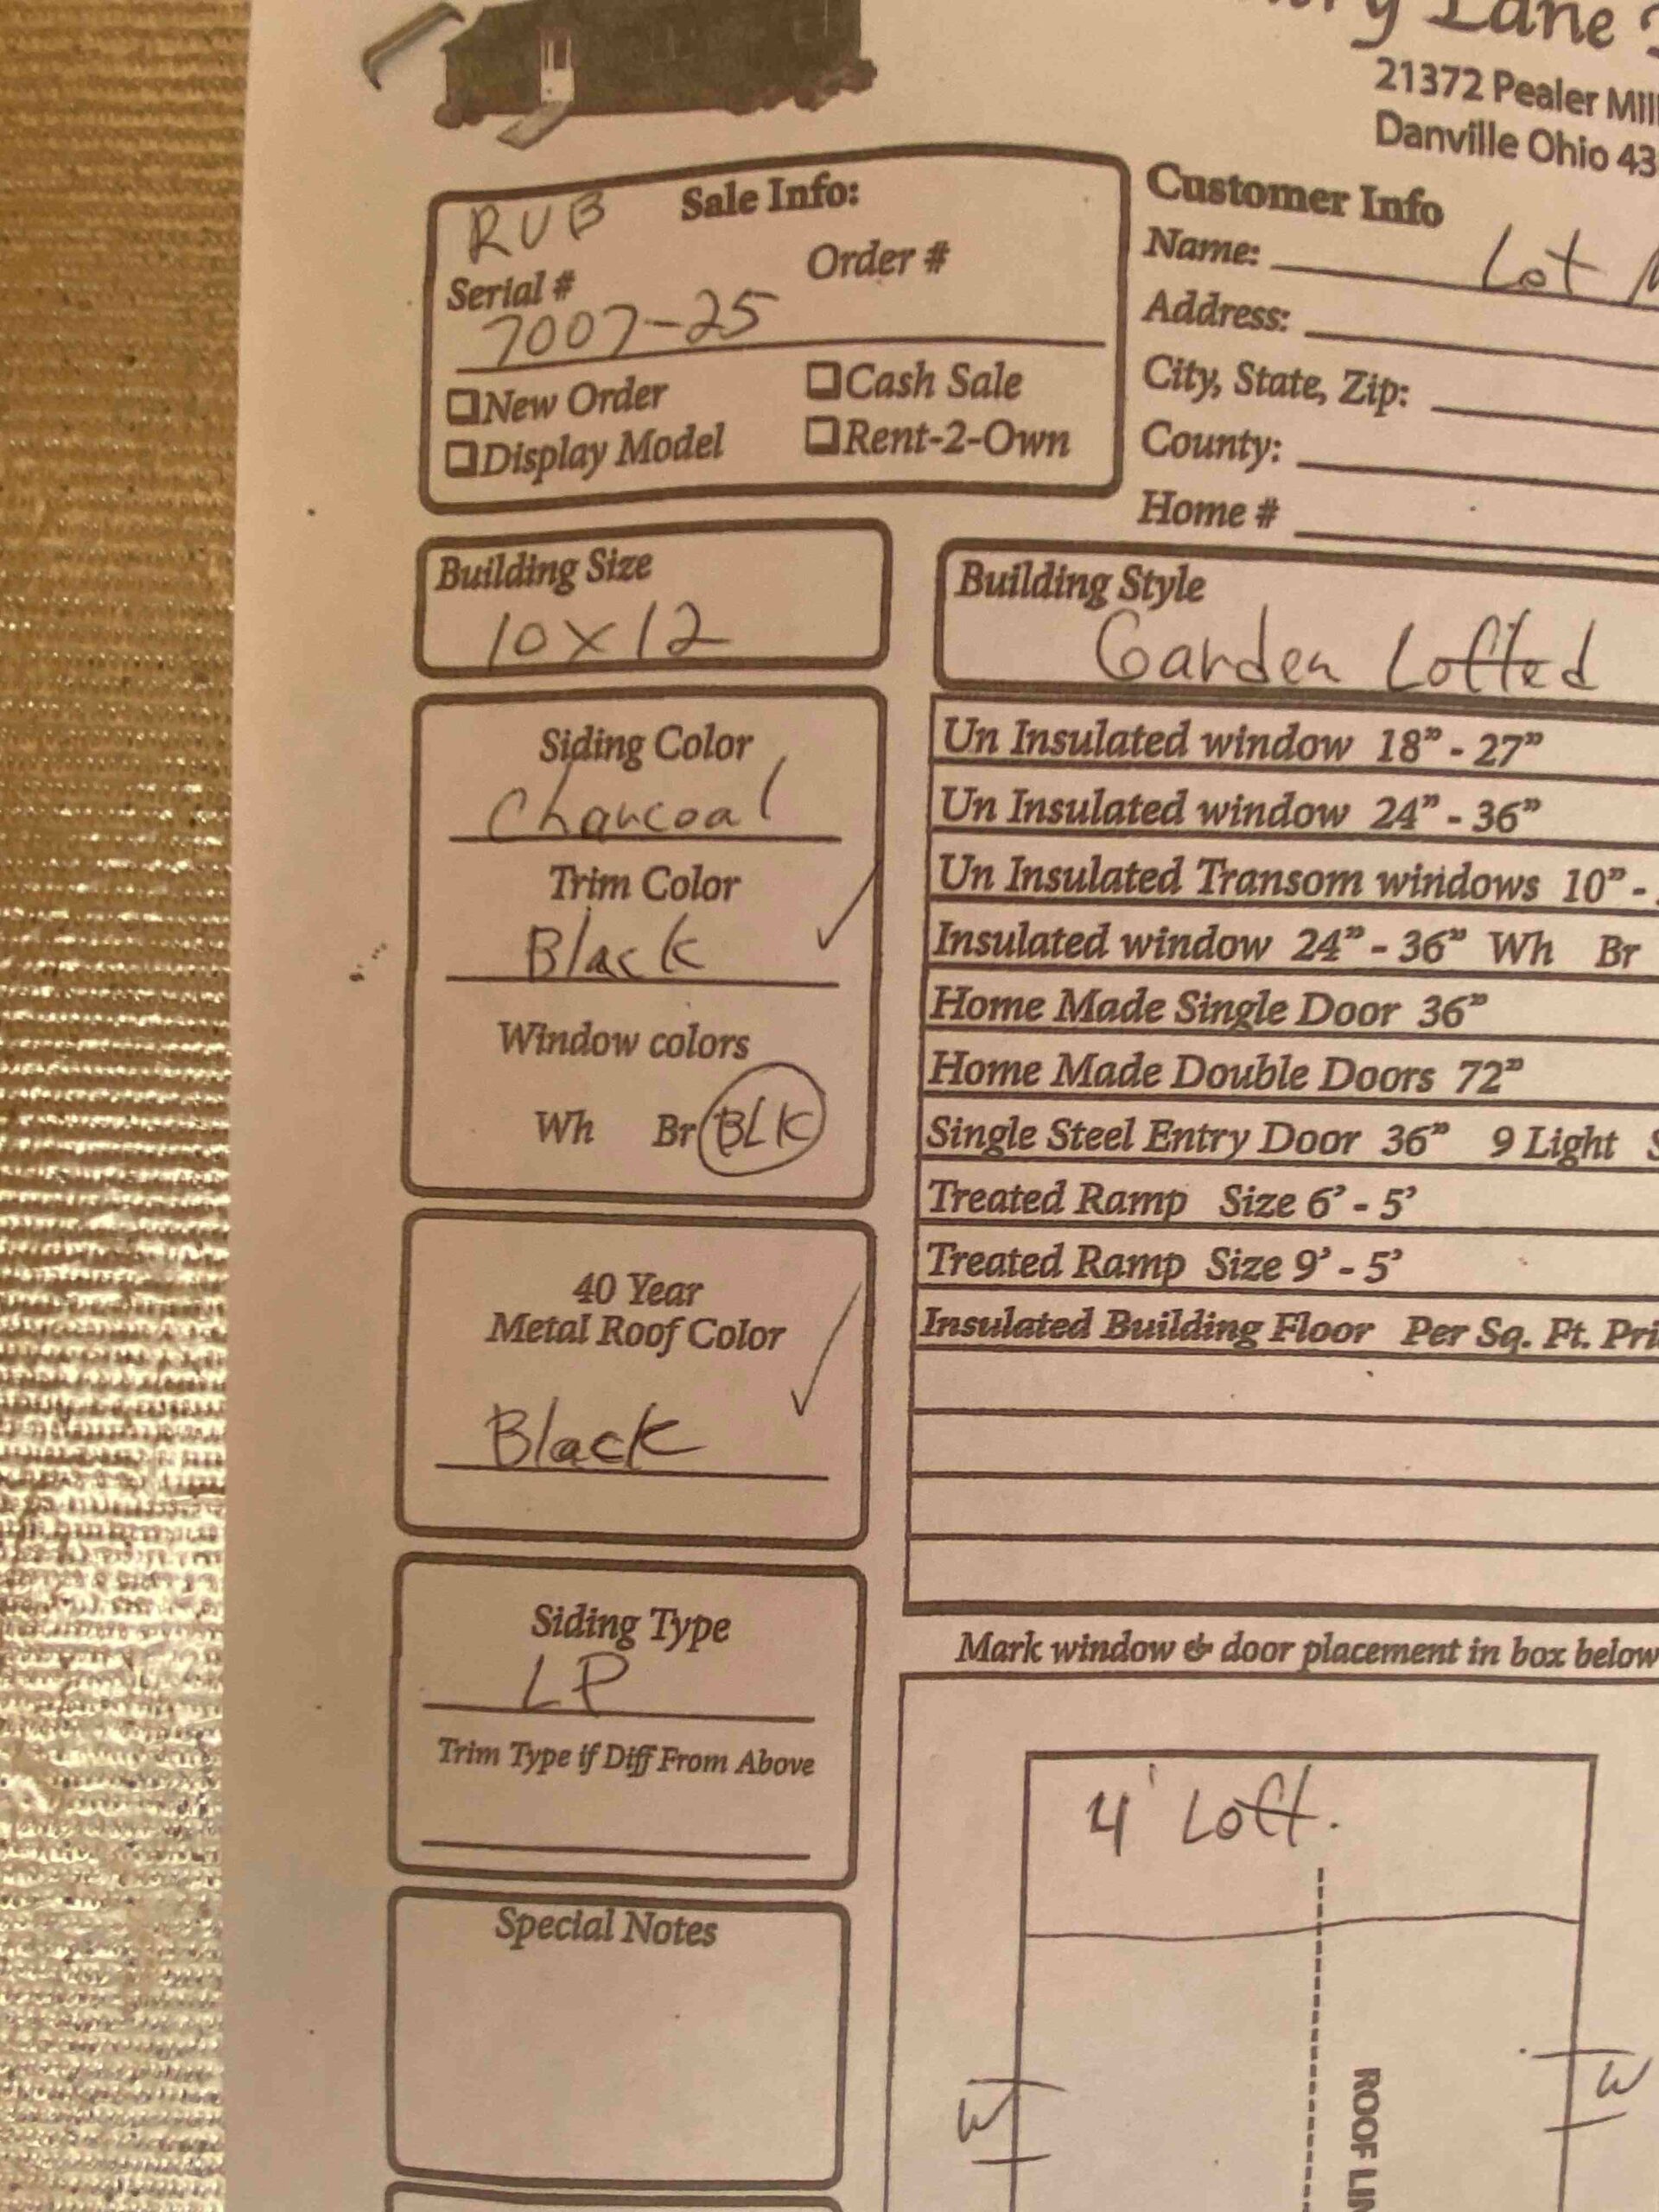 Lane
21372 Pealer Mill
Danville Ohio 43
RUB Sale Info:
Serial # Order #
7007-25
New Order Cash Sale
Display Model Rent-2-Own
Customer Info
Name: Lot
Address:
City, State, Zip:
County:
Home #
Building Size
10x12
Building Style
Garden Lofted
Siding Color
Charcoal
Trim Color
Black
Window colors
Wh Br BLK
40 Year
Metal Roof Color
Black
Siding Type
LP
Trim Type if Diff From Above
Special Notes
Un Insulated window 18” - 27”
Un Insulated window 24” - 36”
Un Insulated Transom windows 10” -
Insulated window 24” - 36” Wh Br
Home Made Single Door 36”
Home Made Double Doors 72”
Single Steel Entry Door 36” 9 Light
Treated Ramp Size 6’ - 5’
Treated Ramp Size 9’ - 5’
Insulated Building Floor Per Sq. Ft.
Mark window & door placement in box below
4' Loft.
W W
ROOF